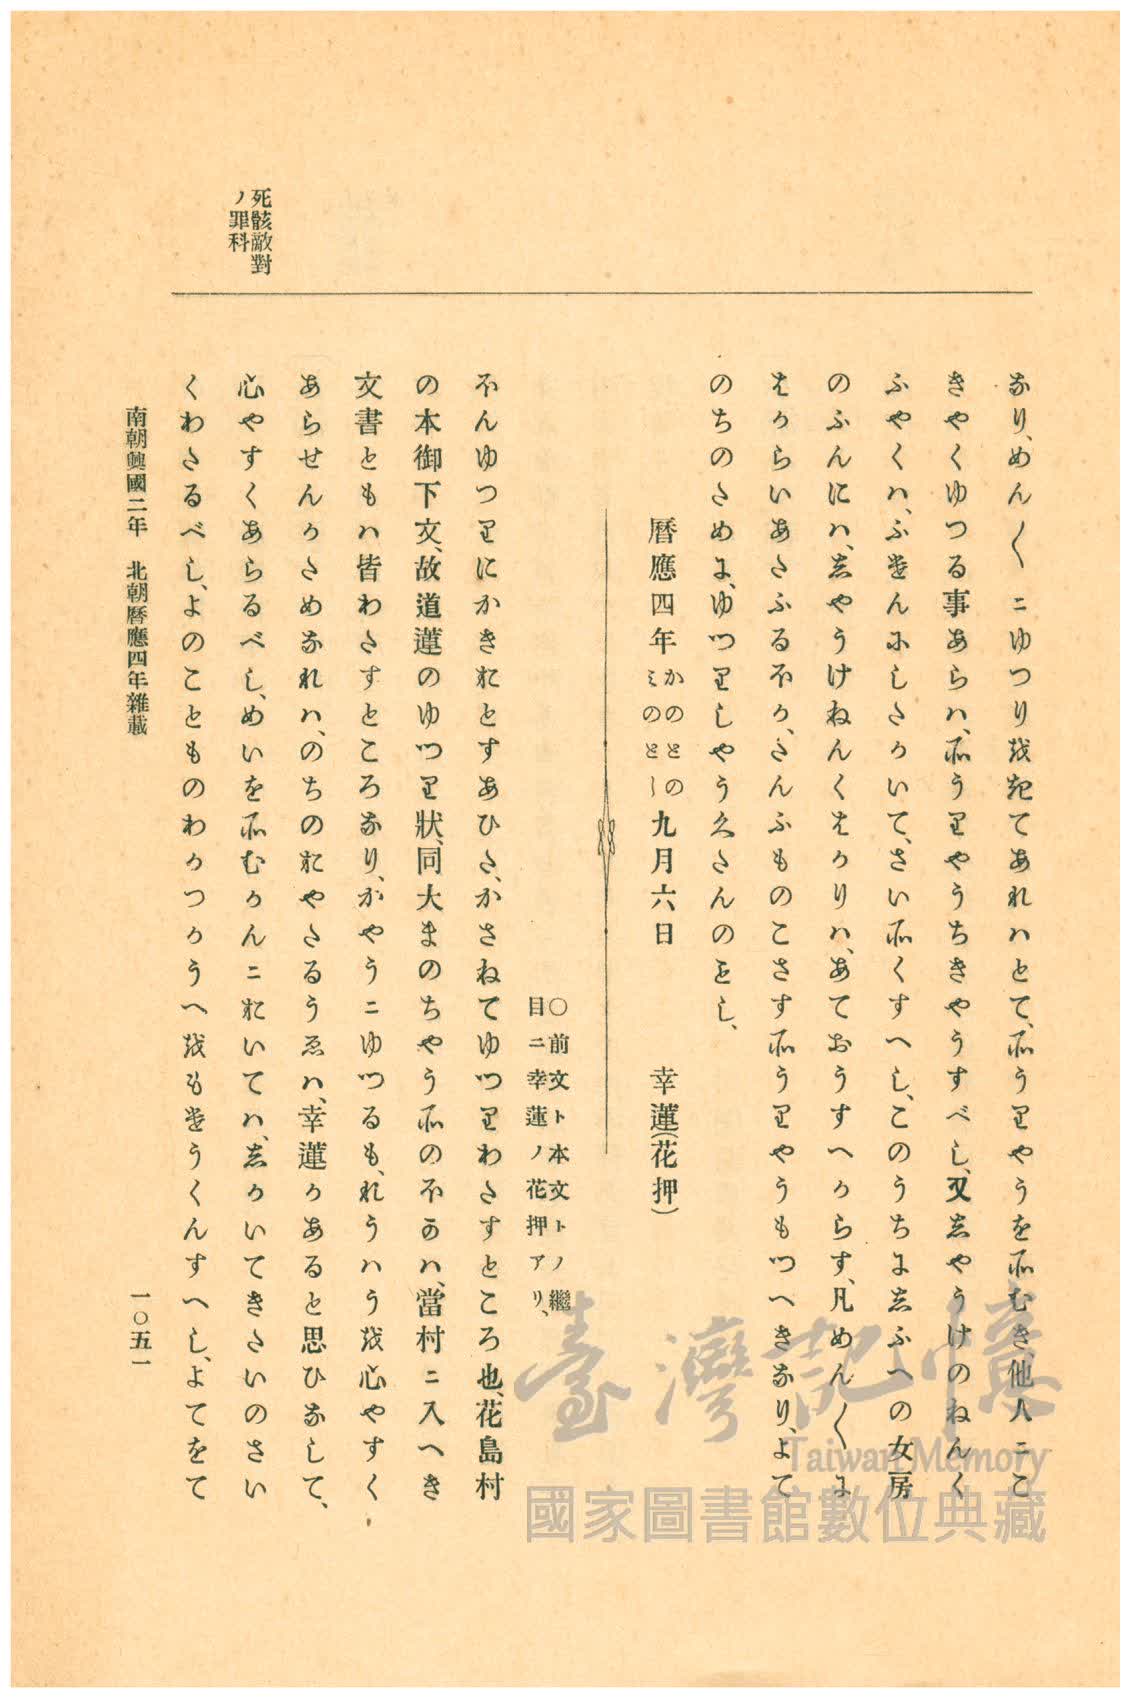 死骸敵對
ノ罪科
なり、めん〱ニゆつり越起てあれハとて、本うりやうを本むき、他人ニこ
きやくゆつる事あらハ、本うりやうちきやうすべし、又志やうけのねんく
ふやくハ、ふせんにしたかいて、さい本くすへし、このうちに志ふへの女房
のふんにハ、志やうけねんくはかりハ、あておうすへからす、凡めん〱に
はからいあたふるほか、さんふものこさす本うりやうもつへきなり、よて
のちのために、ゆつりしやう久たんのとし、
暦應四年かのとの
ミのとし九月六日 幸蓮(花押)
○前文ト本文トノ繼
目ニ幸蓮ノ花押アリ、
ほんゆつりにかきおとすあひた、かさねてゆつりわたすところ也、花島村
の本御下文、故道蓮のゆつり狀、同大まのちやう本のほかハ、當村ニ入へき
文書ともハ皆わたすところなり、かやうニゆつるも、れうハう越心やすく
あらせんかためなれハ、のちのおやたるうゑハ、幸蓮かあると思ひなして、
心やすくあらるべし、めいを本むかんニおいてハ、志かいてきたいのさい
くわたるべし、よのことものわかつかうへ越もせうくんすへし、よてをて
南朝興國二年 北朝暦應四年雜載
一〇五一
臺灣記憶
Taiwan Memory
國家圖書館數位典藏